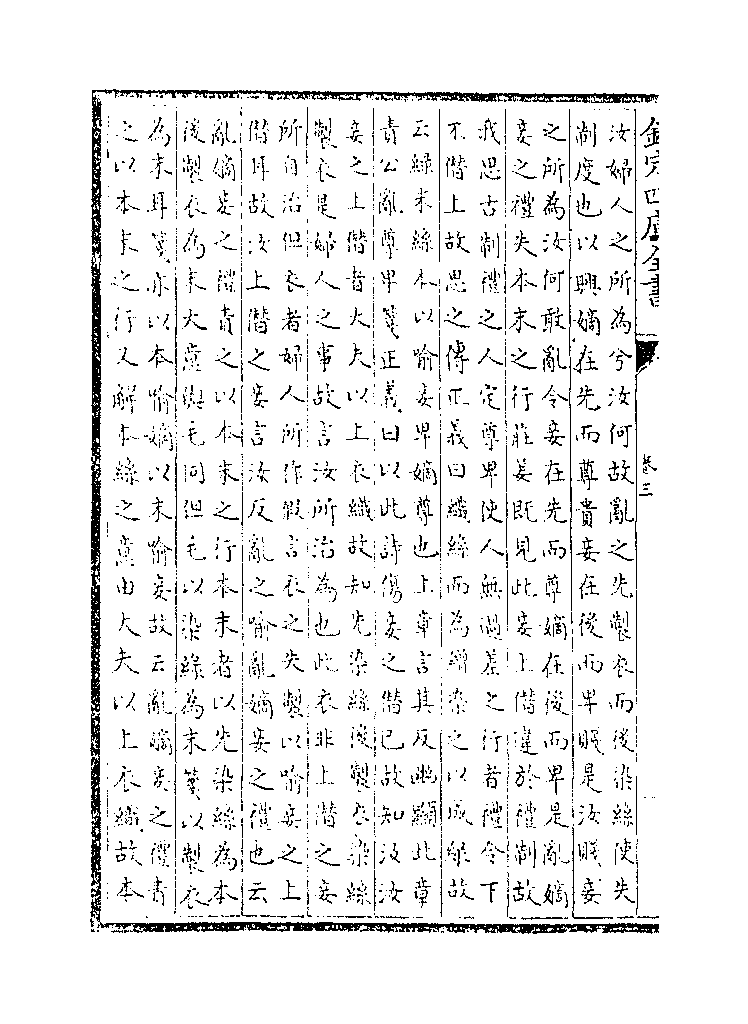 欽定四庫全書
卷三
汝婦人之所為兮汝何故亂之先製衣而後染絲使失
制度也以興嫡在先而尊貴妾在後而卑賤是汝賤妾
之所為汝何敢亂令妾在先而尊嫡在後而卑是亂嫡
妾之禮失本末之行莊姜既見此妾上僣違於禮制故
我思古制禮之人定尊卑使人無過差之行者禮令下
不僣上故思之傳正義曰織絲而為繒染之以成緑故
云緑末絲本以喻妾卑嫡尊也上章言其反幽顯此章
責公亂尊卑箋正義曰以此詩傷妾之僣己故知汝汝
妾之上僣者大夫以上衣織故知先染絲後製衣染絲
製衣是婦人之事故言汝所治為也此衣非上僣之妾
所自治但衣者婦人所作假言衣之失製以喻妾之上
僣耳故汝上僣之妾言汝反亂之喻亂嫡妾之禮也云
亂嫡妾之禮責之以本末之行本末者以先染絲為本
後製衣為末大意與毛同但毛以染緑為末箋以製衣
為末耳箋亦以本喻嫡以末喻妾故云亂嫡妾之禮責
之以本末之行又解本絲之意由大夫以上衣織故本